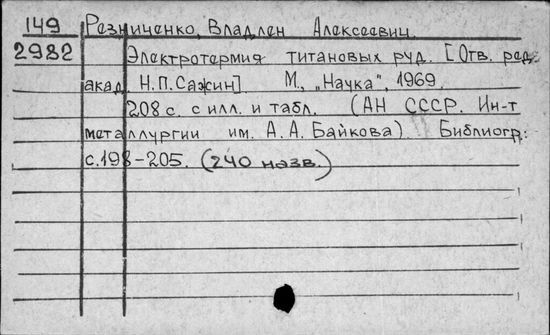 149 Резниченко, Владлен Алексеевич.
2982 Электротермия титановых руд. [Отв. ред.
акад. Н.П. Сажин] М., „Наука", 1969.
208 с. с илл. и табл. (АН СССР. Ин-т
металлургии им. А.А. Байкова) Библиогр:
с. 198-205. (240 назв.)